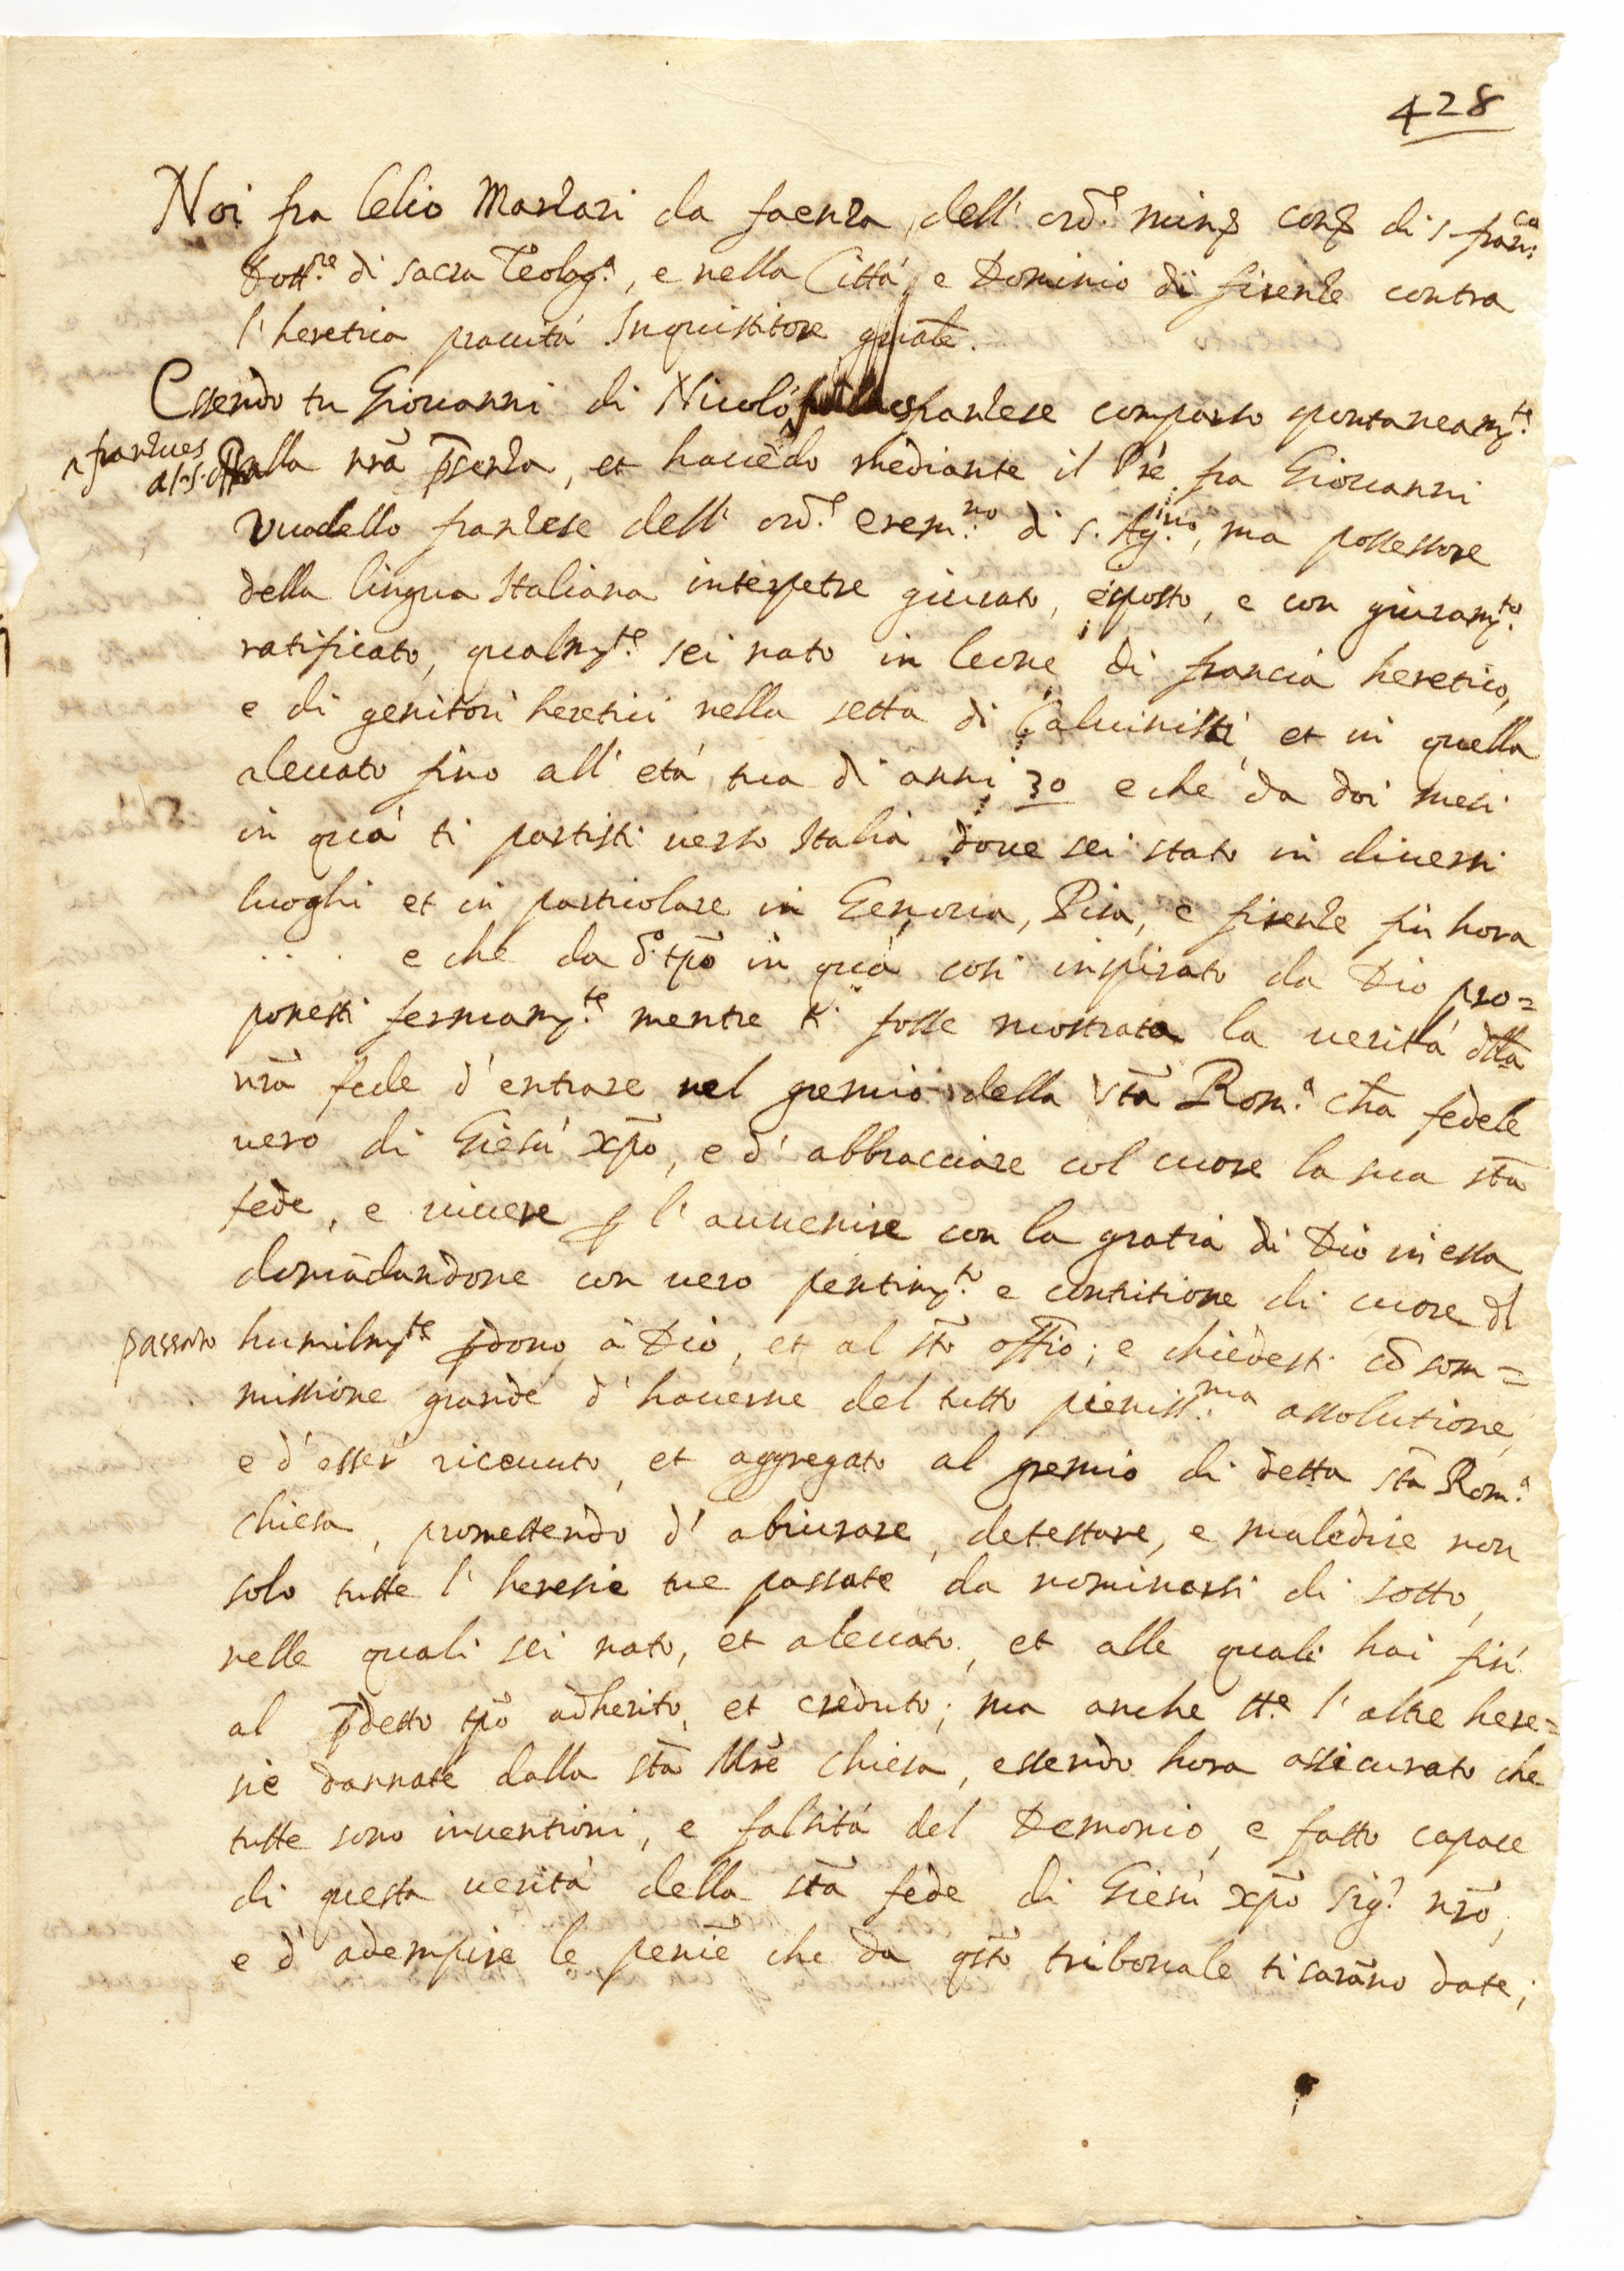 428
Noi fra Lelio Marzari da faenza, dell' ord.e min. con. di s. fran.co
Dott.re di sacra Teolog.a, e nella Città, e Dominio di firenze contra
l'heretica prauità Inquisitore gnãle.
Essendo tu Giouanni di Nicolò franzese comparso spontaneam.te
alla nrã pñza, et hauẽdo mediante il Prẽ fra Giouanni
al s. offo
Vuadello franzese dell' ord.e erem.no di s. Ag.ino, ma possessore
della lingua Italiana interpetre giurato, esposto, e con giuram.to
ratificato, qualm.te sei nato in leone di francia heretico,
e di genitori heretici nella setta di Caluinisti, et in quella
aleuato fino all' età tua di anni 30 e che da doi mesi
in quà ti partisti uerso Italia doue sei stato in diuersi
luoghi et in particolare in Genoua, Pisa, e firenze fin hora
. . . e che da d.o tpõ in quà così inspirato da Dio pro=
ponesti fermam.te mentre ti fosse mostrata la uerità dlla
nrã fede d'entrare nel gremio della stã Rom.a chã fedele
uero di Giesù xpõ, e d'abbracciare col cuore la sua stã
fede, e uiuere p l'auuenire con la gratia di Dio in essa
domãdandone con uero pentim.to e contritione di cuore dl
passato humilm.te pdono à Dio, et al stõ offio; e chiedesti cõ som=
missione grande d'hauerne del tutto pieniss.ma assolutione,
e d'esser riceuuto, et aggregato al gremio di detta stã Rom.a
chiesa, promettendo d'abiurare, detestare, e maledire non
solo tutte l'heresie tue passate da nominarsi di sotto,
nelle quali sei nato, et aleuato, et alle quali hai fin
al pdetto tpõ adherito, et creduto; ma anche tt.e l'altre here=
sie dannate dalla stã Mrẽ chiesa, essendo hora assicurato che
tutte sono inuentioni, e falsità del Demonio, e fatto capace
di questa uerità della stã fede di Giesù xpõ sig.r nrõ,
e d'adempire le penie che da qstõ tribonale ti sarãno date;